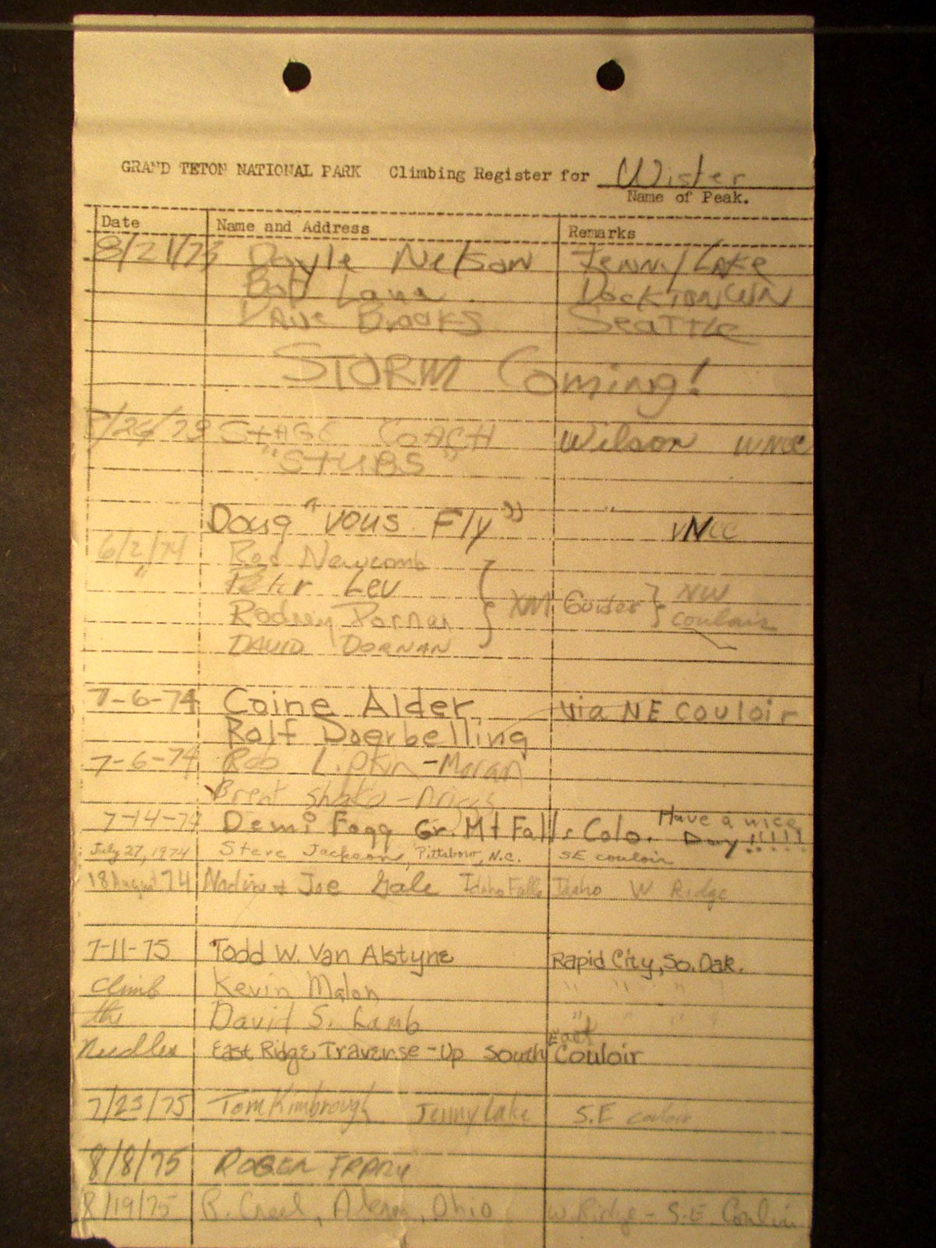 GRAND TETON NATIONAL PARK Climbing Register for Wister
Name of Peak.
Date Name and Address Remarks
8/21/73 Dayle Nelson Jenny Lake
Bob
Dave Brooks Seattle
STORM Coming!
8/26/73 STAGE COACH Wilson
"STUBS"
Doug "vous Fly"
6/2/74 Rod Newcomb
" Peter Lev XM Guides NW
Rodney Dornan couloir
DAVID DORNAN
7-6-74 Coine Alder via NE Couloir
Rolf Doerbelling
7-6-74 Rob Lipkin-Moran
Brent
7-14-74 Demi Fogg Gr. Mt Falls Colo. Have a nice Day!!!!!
July 27, 1974 Steve Jackson, Pittsboro, N.C. SE couloir
18 August 74 Nadine & Joe Gale Idaho Falls Idaho W Ridge
7-11-75 Todd W. Van Alstyne Rapid City, So. Dak.
Climb Kevin Malon " " " "
the David S. Lamb " " "
Needles East Ridge Traverse-Up South East Couloir
7/23/75 Tom Kimbrough Jenny Lake S.E couloir
8/8/75 ROGER FRARY
8/19/75 B. Creel, Ohio W. Ridge - S.E. Couloir